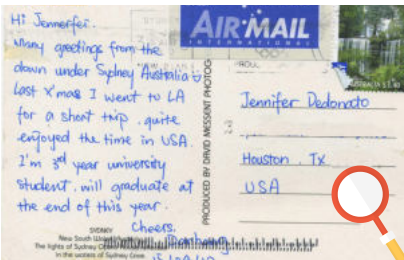 Hi Jennerfer.
Many greetings from the
down under Sydney Australia
Last Xmas I went to LA
for a short trip. quite
enjoyed the time in USA.
I'm 3rd year university
student. will graduate at
the end of this year.
Cheers.
SYDNEY
New South Wales
The lights of Sydney
in the waters of Sydney Cove
PRODUCED BY DAVID MESSENT PHOTOG
AIR MAIL
INTERNATIONAL
AUSTRALIA
Jennifer Dedonato
Houston. TX
USA